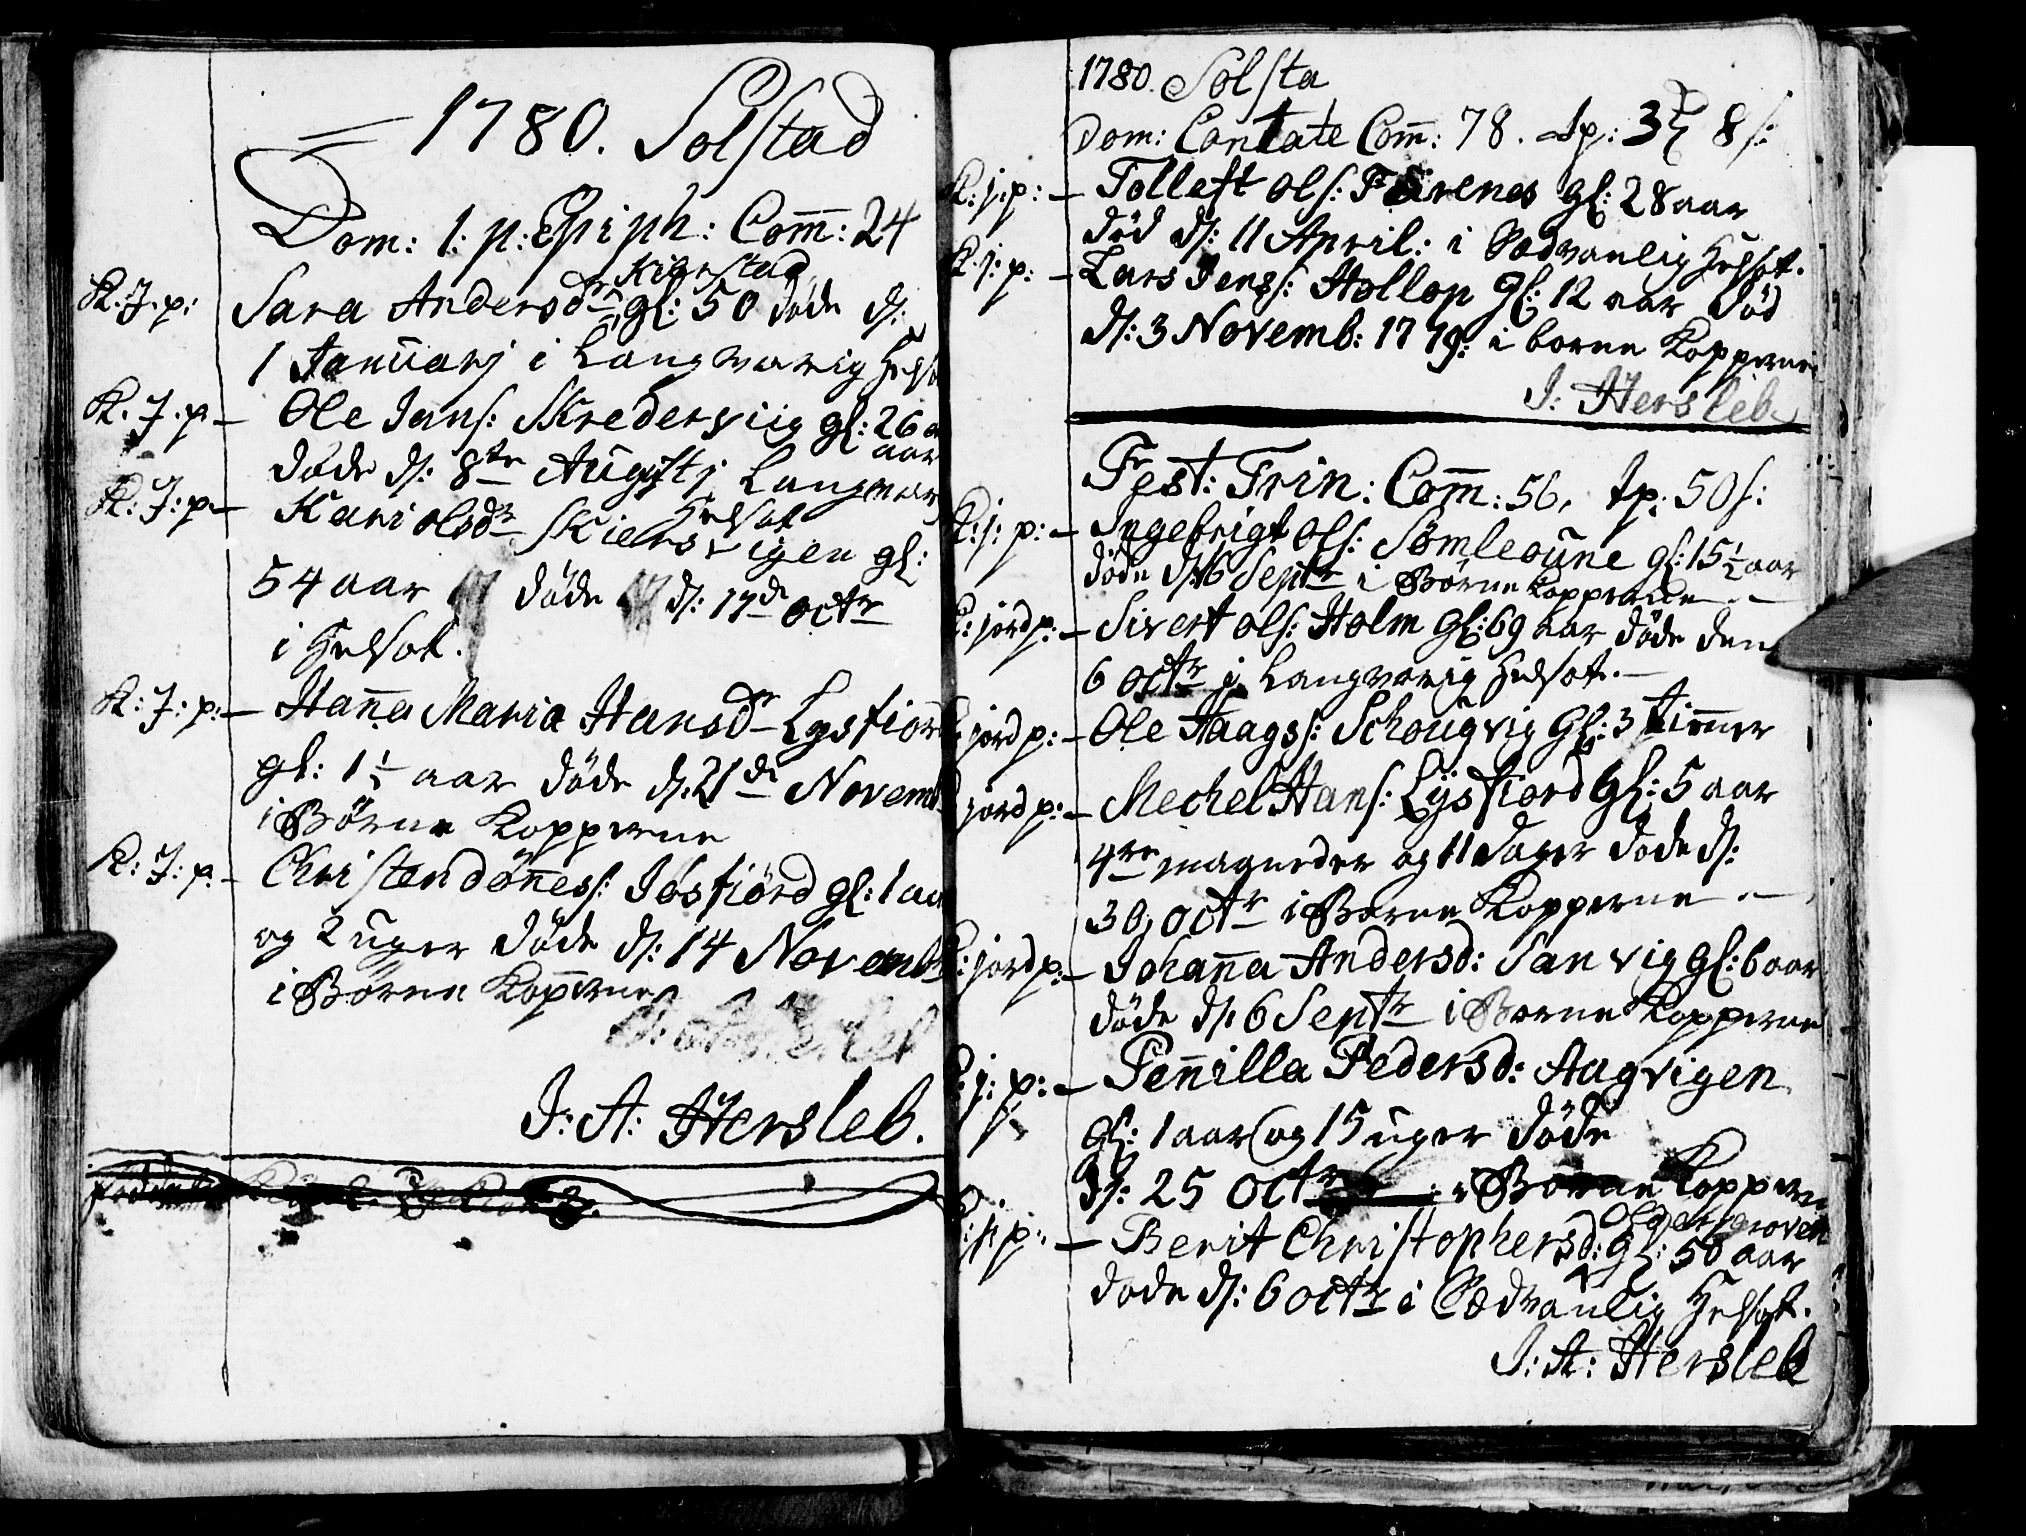 1780. Solstad
Dom: 1: p: Epiph: Com̄: 24
K. J. p: Sara Andersdr gl: 50 døde d:
1 Januarj i Langvarig Helsot
K. J. p – Ole Jans: Skredervig gl: 26
aar
døde d: 8de Augusti Langvar
Helsot
K: J: p – Kari olsdr Skiersvigen gl:
54 aar døde d: 17de octr
i Helsot.
K: J: p: – Hanna Maria Hansdr Lysfiord
gl: 1½ aar døde d: 21de Novemb
i Børne Kopperne
K: J: p. – Christen Jøness: Josfiord gl: 1 aar
og 2 uger døde d: 14 Novemb
i Børne Kopperne
J: A: Hersleb.
1780. Solsta
Dom: Cantate Com̄: 78. Tp: 3 8 s:
K: j: p: – Tolleft ols: Farenes gl: 28 aar
død d: 11 April: i Sædvanlig Helsot.
K: j: p: – Lars Jenss: Hollop gl: 12 aar død
d: 3 Novemb: 1779: i borne Kopperne
J: Hersleb
Fest: Trin: Com̄: 56, Tp: 50 s:
K: j: p: – Ingebrigt ols: Sømleoune gl: 15½ aar
døde d: 16 Septr i Børne Kopperne –
K: jord p: – Sivert ols: Holm gl: 69 aar døde den
6 octr i Langvarig Helsot. –
K: jord p: – Ole Haagss: Schougvig gl: 3 timer
jord p: – Mechel Hans: Lysfiord gl: 5 aar
4re magneder og 11 dager døde d:
30 octr i Børne Kopperne –
K: jord p: – Johanna Andersd: Sanvig gl: 6 aar
døde d: 6 Septr i Børne Kopperne
K: j: p: – Pernilla Pedersd: Aagvigen
gl: 1 aar og 15 uger døde
d: 25 octr i Børne Kopperne
K: j: p: – Berit Christophersd: gl: 50 aar
døde d: 6 octr i Sædvanlig Helsot.
J: A: Hersleb